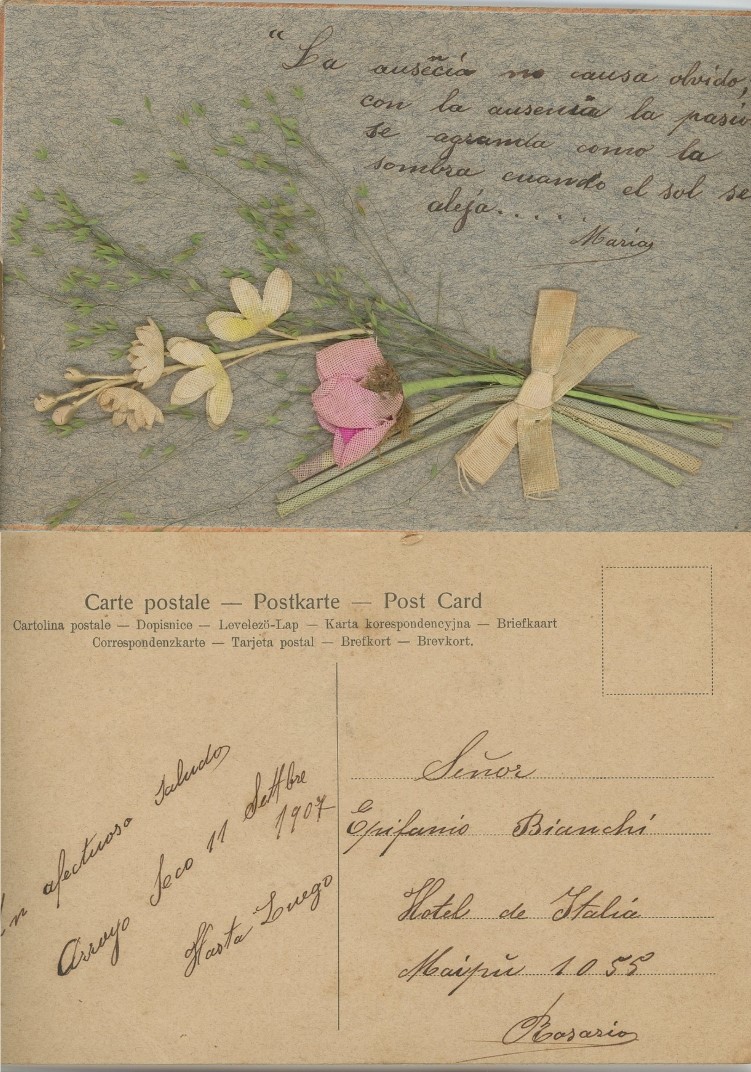 “La auseñcia no causa olvido,
con la ausensia la pasio
se agranda como la
sombra cuando el sol se
aleja.....
Maria
Carte postale — Postkarte — Post Card
Cartolina postale — Dopisnice — Levelező-Lap — Karta korespondencyjna — Briefkaart
Correspondenzkarte — Tarjeta postal — Brefkort — Brevkort.
Un afectuoso saludo
Arroyo Seco 11 Settbre
1907
Hasta Luego
Señor
Epifanio Bianchi
Hotel de Italia
Maipŭ 1055
Rosario